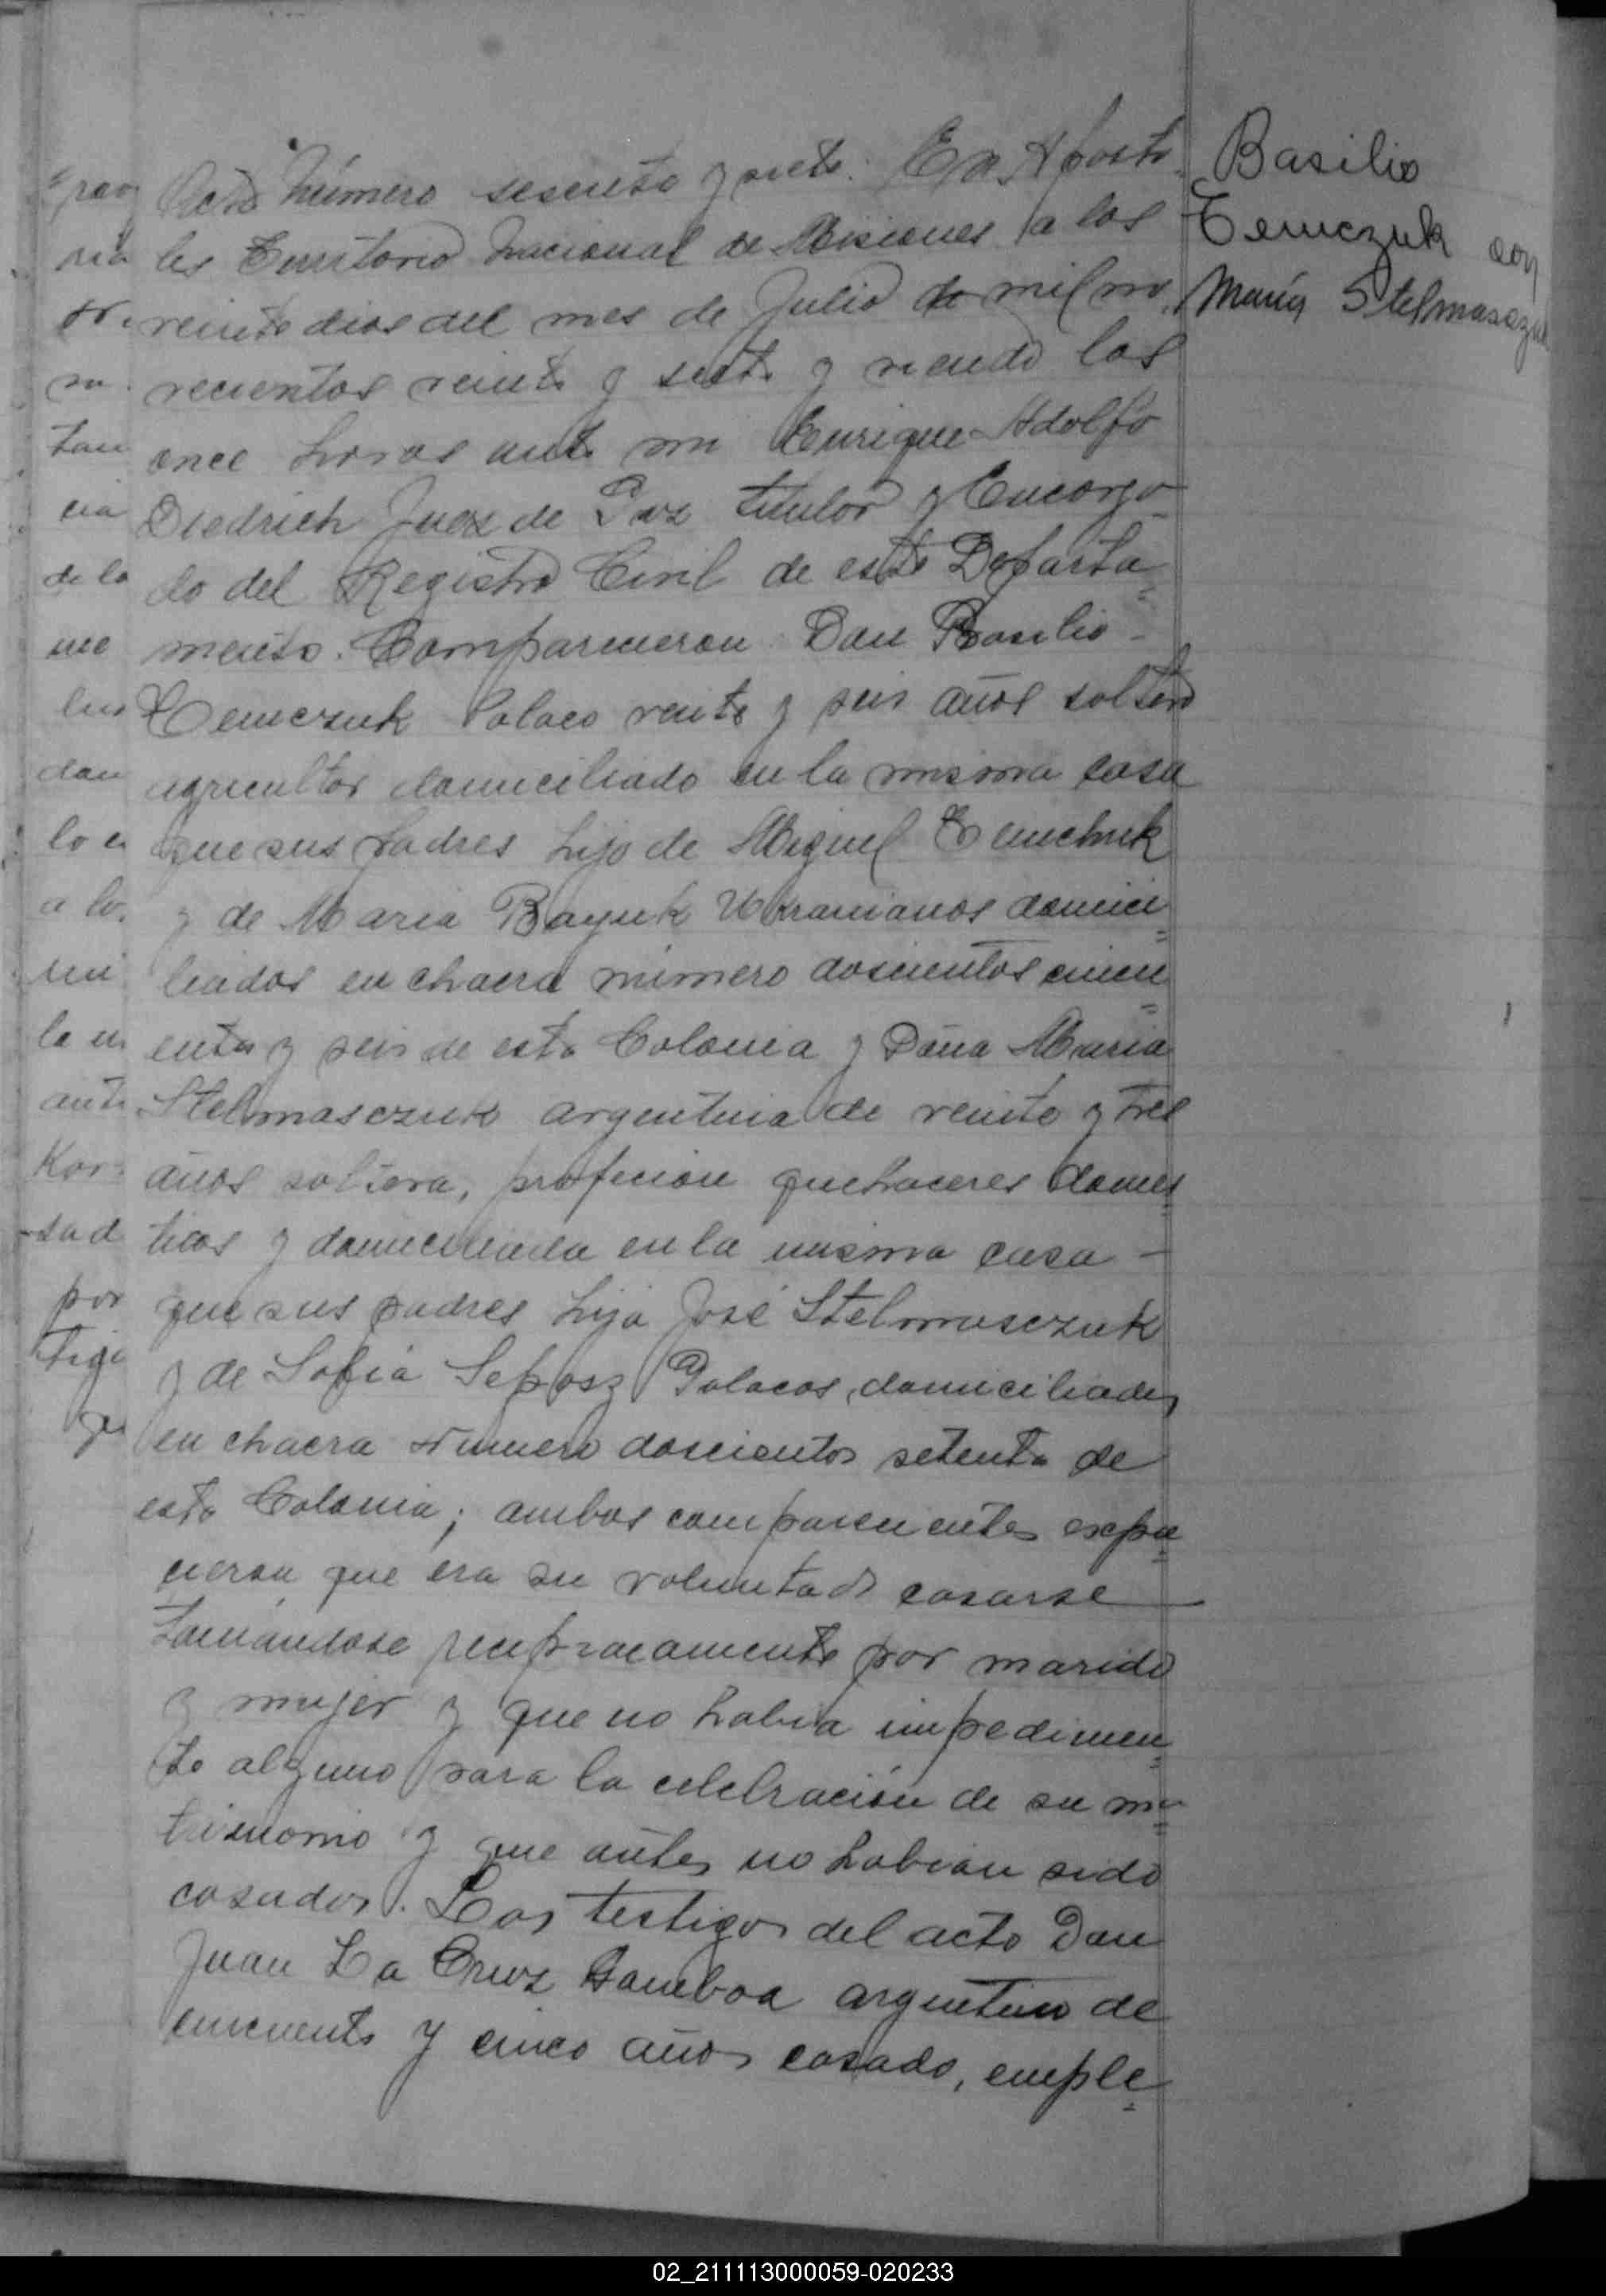 Acta Número sesenta y siete. En Aposto
les Territorio Nacional de Misiones a los
veinte dias del mes de Julio de mil no
vecientos veinte y siete y siendo las
once horas ante mi Enrique Adolfo
Diedrich Juez de Paz titular y Encarga
do del Registro Civil de este Departa
mento. Comparecieron Don Basilio
Temczuk Polaco veinte y seis años soltero
agricultor domiciliado en la misma casa
que sus padres hijo de Miguel Temchuk
y de Maria Bayuk Ukranianos domici
liados en chacra número doscientos cincu
enta y seis de esta Colonia y Doña Maria
Stelmasczuk argentina de veinte y tres
años soltera, profecion quehaceres domes
ticos y domiciliada en la misma casa
que sus padres hija José Stelmasczuk
y de Sofia Polacos, domiciliados
en chacra Numero doscientos setenta de
esta Colonia; ambos comparecientes expu
cieron que era su voluntad casarse
tomándose reciprocamente por marido
y mujer y que no habia impedimen
to alguno para la celebración de su ma
trimonio y que antes no habian sido
casados. Los testigos del acto Don
Juan La Cruz Gamboa argentino de
cincuenta y cinco años casado, emple
Basilio
Temczuk con
María Stelmasczuk
ria
tan
cia
de la
me
dan
lo e
a lo
la
ante
Kor
sad
por
tigo
02_211113000059-020233